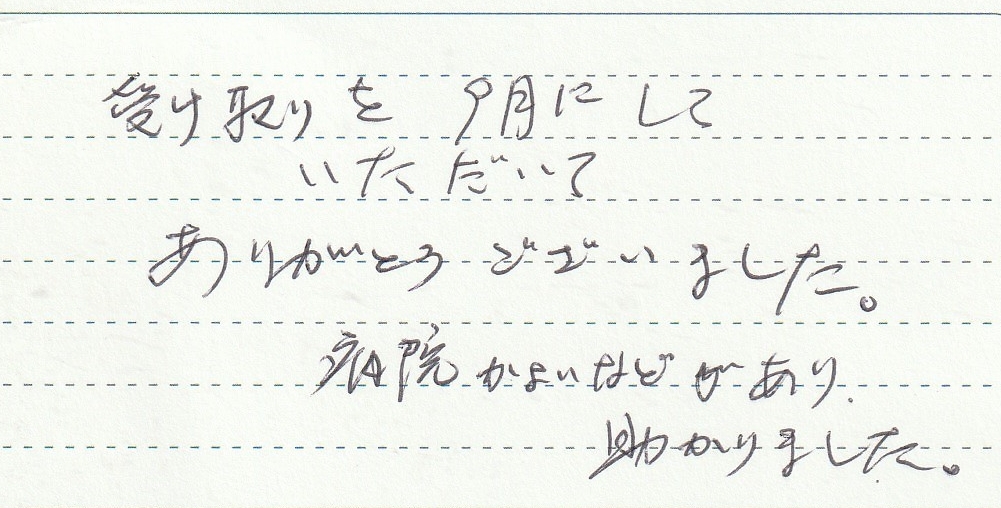 受け取りを 9月にして
いただいて
ありがとうございました。
病院かよいなどがあり、
助かりました。